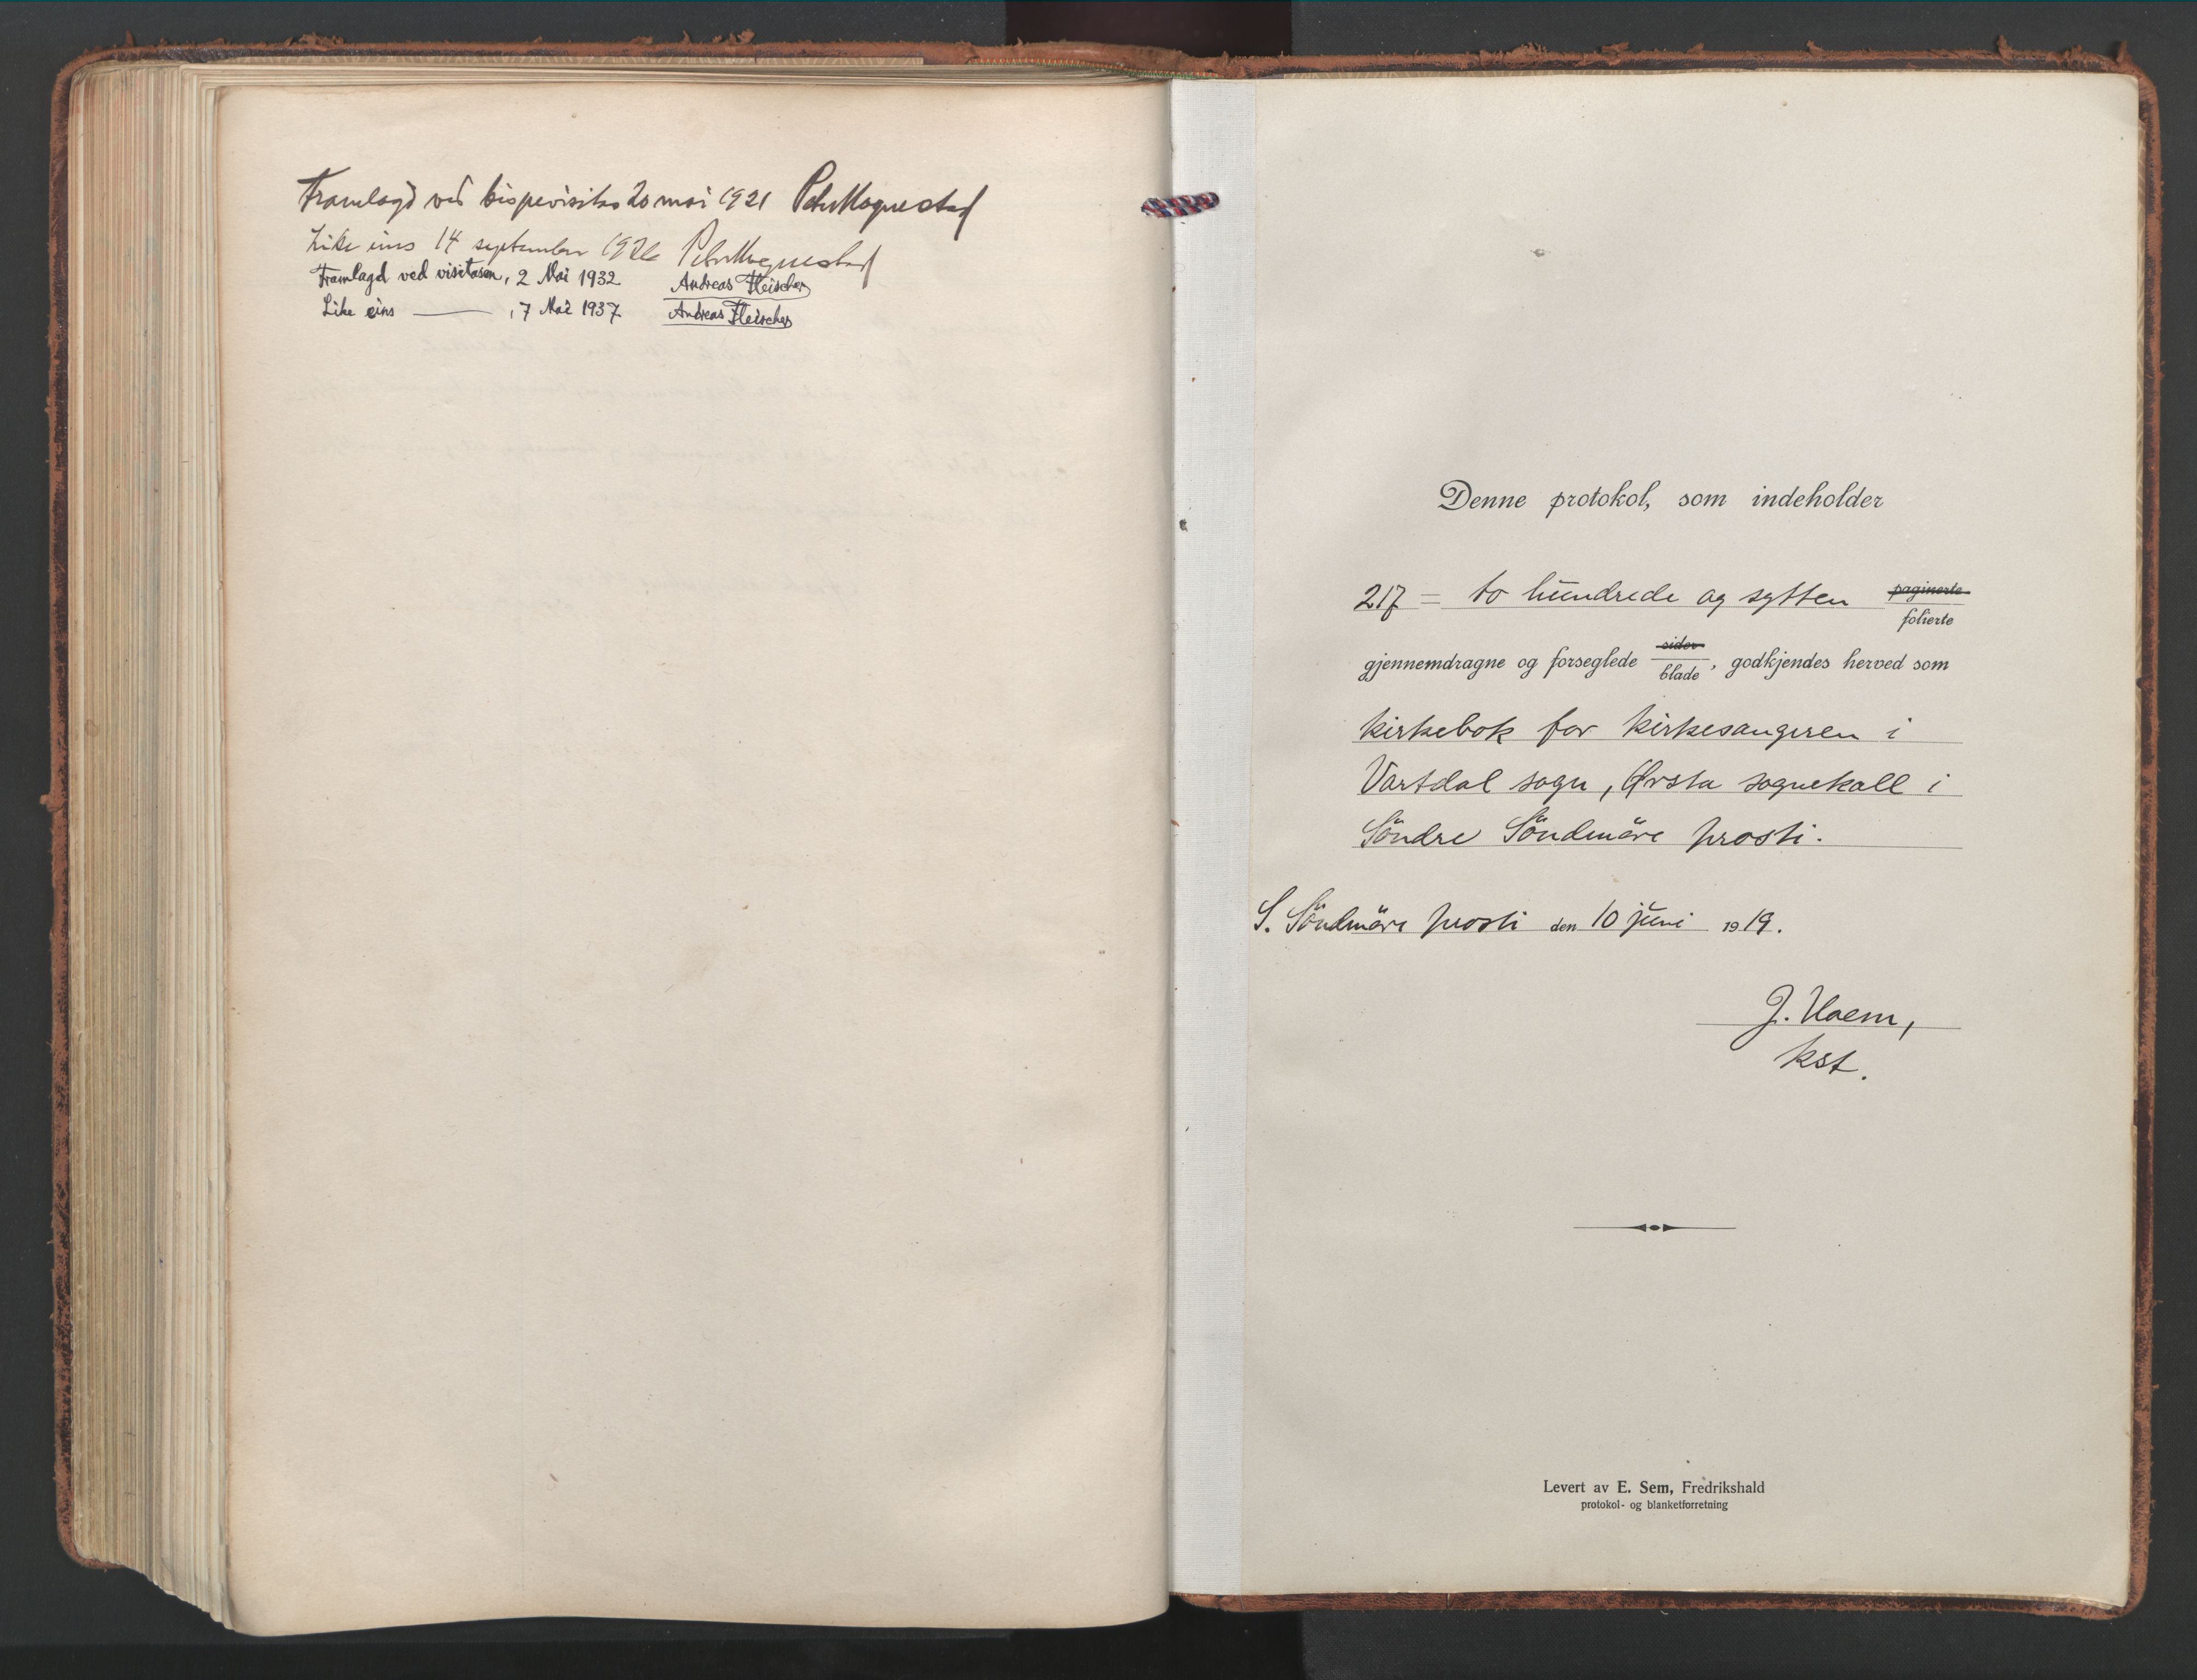 Framlagd ved bispevisitas 20 mai 1921 Peter Hognestad
Like eins 14 september 1926 Peter Hognestad
Framlagd ved visitasen, 2 Mai 1932 Andreas Fleischer
Like eins ——— , 7 Mai 1937 Andreas Fleischer
Denne protokol, som indeholder
217 = to hundrede og sytten paginerte
folierte
gjennemdragne og forseglede sider
blade, godkjendes herved som
kirkebok for kirkesangeren i
Vartdal sogn, Ørsta sognekall i
Söndre Söndmöre prosti.
S. Söndmöre prosti den 10 juni 1919.
J. Haem,
kst.
Levert av E. Sem, Fredrikshald
protokol- og blanketforretning